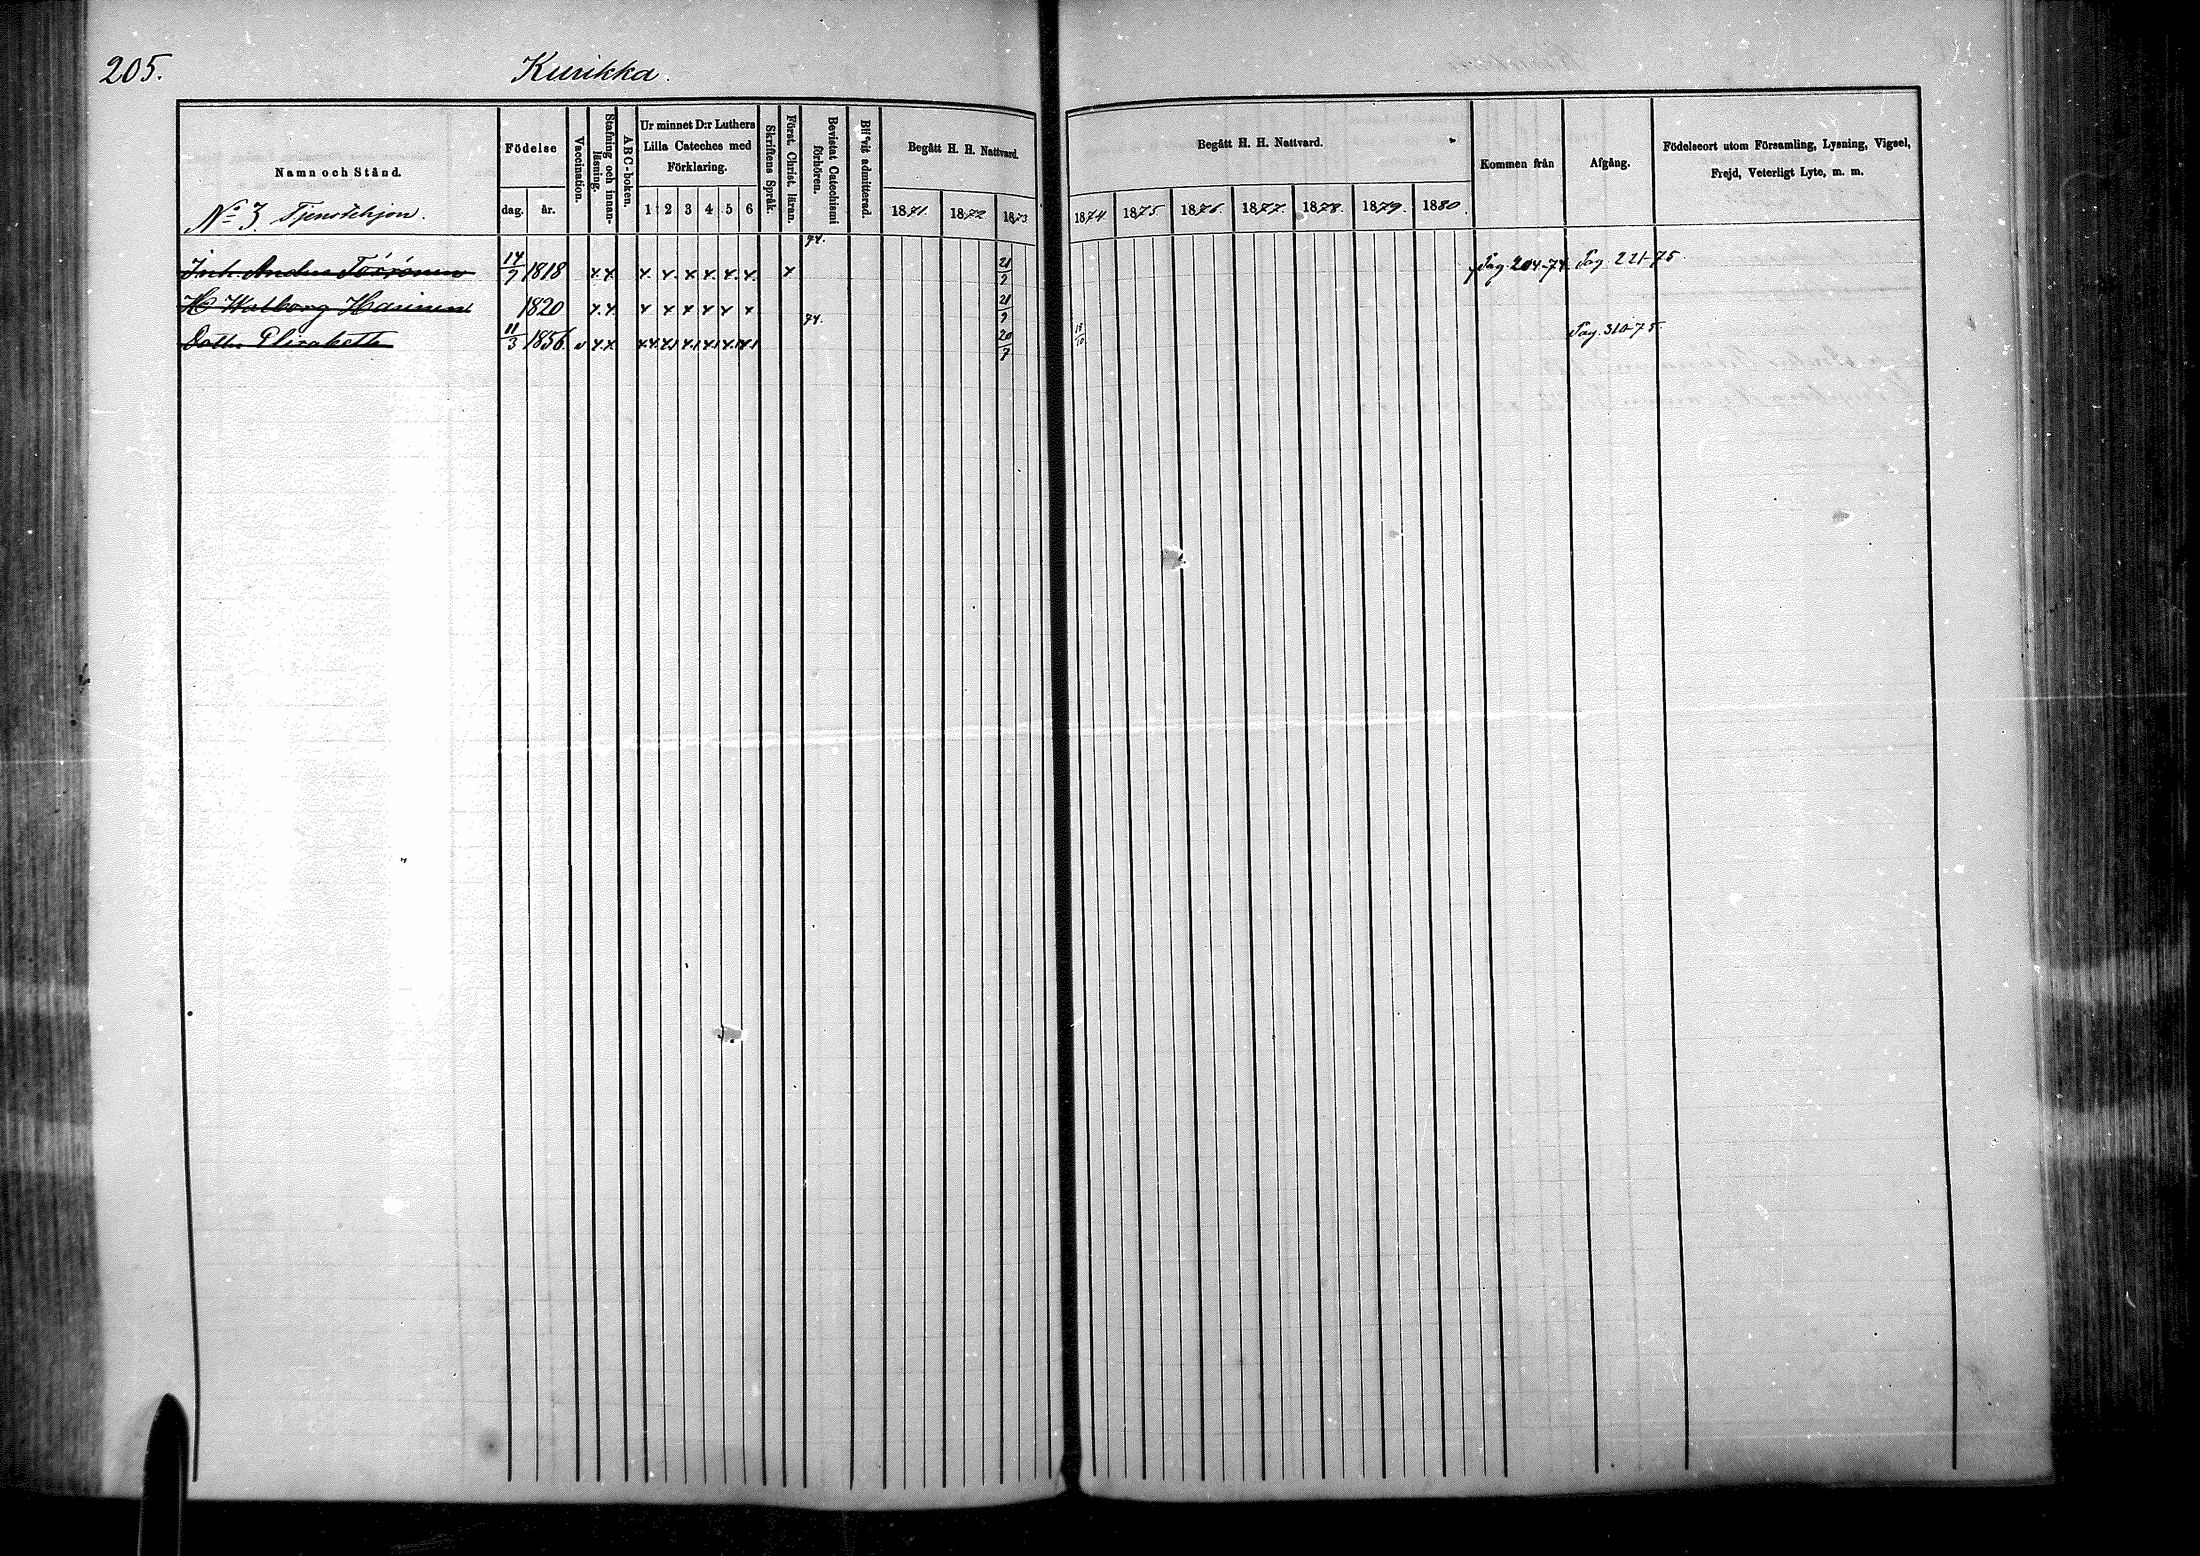 205.
Kurikka.
Namn och Stånd.
Födelse
dag. år.
Vaccination.
Stafning och innan-läsning.
ABC-boken.
Ur minnet D:r Luthers
Lilla Cateches med
Förklaring.
1 2 3 4 5 6
Skriftens Språk.
Först. Christ. läran.
Bevistat Catechismi
förhören.
Blifvit admitterad.
Begått H. H. Nattvard.
1871. 1872 1873
Begått H. H. Nattvard.
1874 1875 1876. 1877. 1878. 1879. 1880.
Kommen från
Afgång.
Födelseort utom Församling, Lysning, Vigsel,
Frejd, Veterligt Lyte, m. m.
No 3. Tjenstehjon.
Inh. Anders Törrönen 14/9 1818 x x x x x x x x x 74. 21/9 Pag. 204-74 Pag. 221-75
H Walborg 1820 x x x x x x x x 21/9
Dottr Elisabeth 11/3 1856 v x x 74. 20/7 18/10 Pag. 310-75.